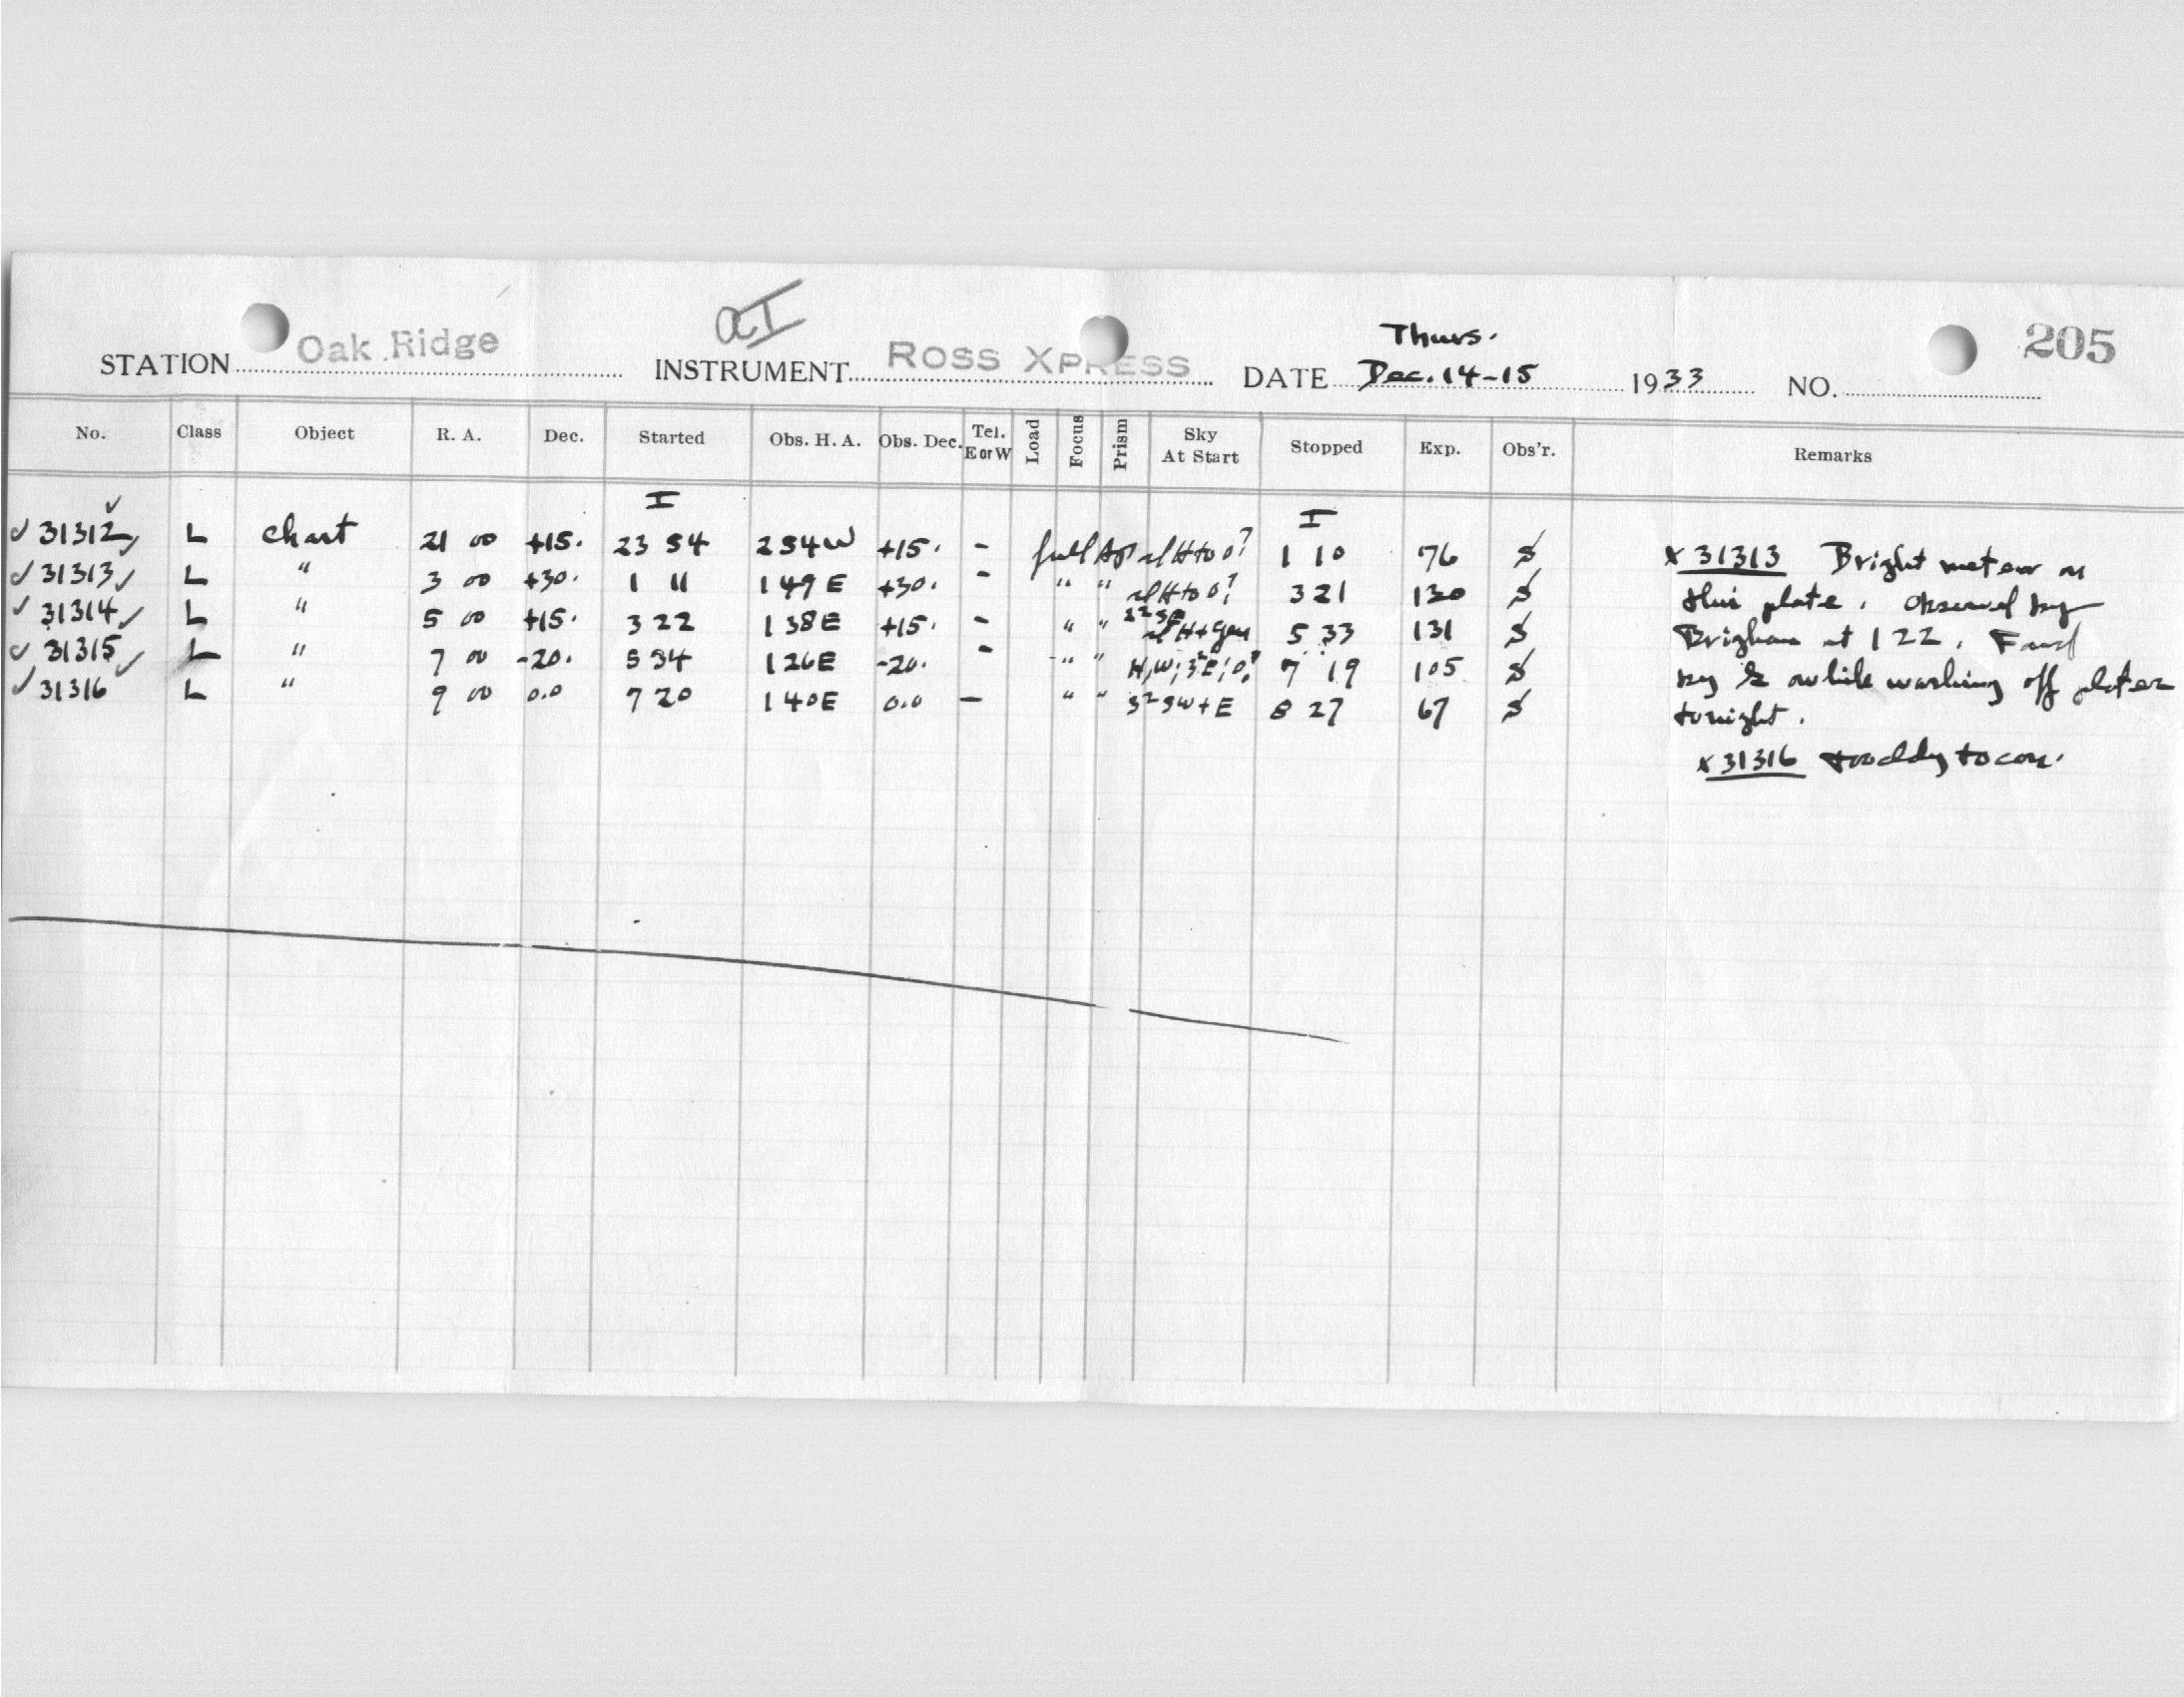 aI
Thurs.
STATION Oak Ridge INSTRUMENT ROSS XPRESS DATE Dec. 14-15 1933 NO. 205
No. Class Object R. A. Dec. Started Obs. H. A. Obs. Dec. Tel. E or W Load Focus Prism Sky At Start Stopped Exp. Obs'r. Remarks
I I
31312 L chart 21 00 +15. 23 54 2 54 W +15. - full Ap sl H to 0? 1 10 76 S
31313 L " 3 00 +30. 1 11 1 49 E +30. - " " sl H to 0? 3 21 130 S
31314 L " 5 00 +15. 3 22 1 38 E +15. - " " sl H + gen 5 33 131 S
31315 L " 7 00 -20. 5 34 1 26 E -20. - " " 7 19 105 S
31316 L " 9 00 0.0 7 20 1 40 E 0.0 - " " S² SW + E 8 27 67 S
x 31313 Bright meteor on
this plate. Observed by
Brigham at 1 22. Found
by while washing off plates
tonight.
x 31316 too cldy to con.